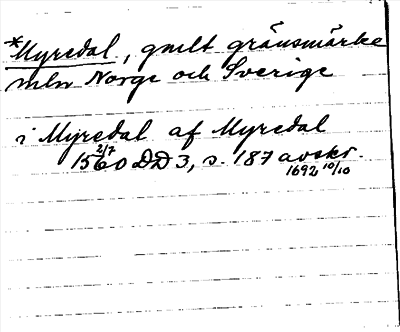 *Myredal, gmlt gränsmärke
mln Norge och Sverige
i Myredal af Myredal
15 2/7 60 DD 3, s. 187 avskr.
1692 10/10